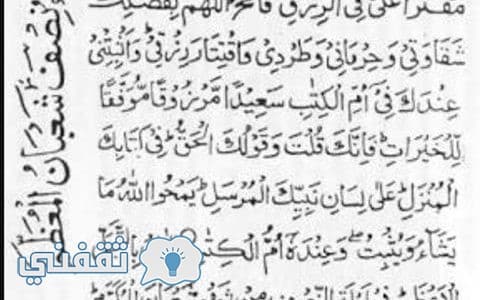 مُقَتَّرًا عَلَيَّ فِي الرِّزْقِ فَامْحُ اللّٰهُمَّ بِفَضْلِكَ
شَقَاوَتِيْ وَحِرْمَانِيْ وَطَرْدِيْ وَاقْتِتَارَ رِزْقِيْ وَاَثْبِتْنِيْ
عِنْدَكَ فِيْ اُمِّ الْكِتٰبِ سَعِيْدًا مَّرْزُوْقًا مُّوَفَّقًا
لِّلْخَيْرَاتِ فَاِنَّكَ قُلْتَ وَقَوْلُكَ الْحَقُّ فِيْ كِتَابِكَ
الْمُنْزَلِ عَلٰى لِسَانِ نَبِيِّكَ الْمُرْسَلِ يَمْحُوا اللهُ مَا
يَشَآءُ وَيُثْبِتُ وَعِنْدَهٗ اُمُّ الْكِتٰبِ
نصف شعبان المعظم
ثقفني